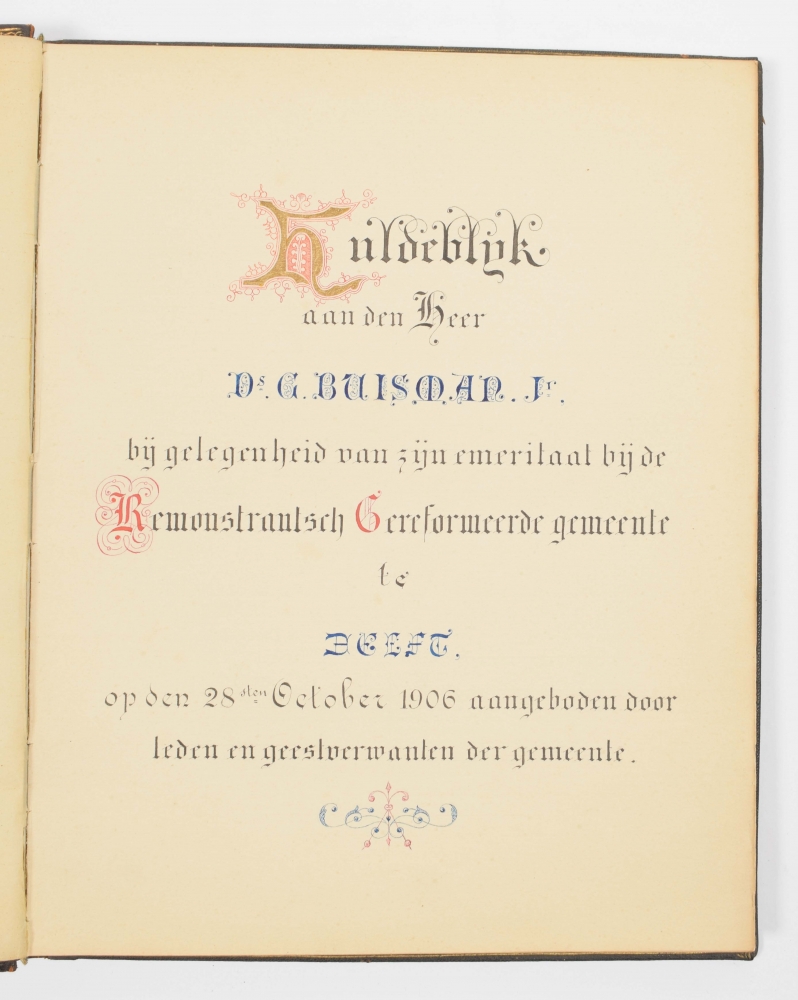 Huldeblijk
aan den Heer
Ds. G. BUISMAN. Jr.
bij gelegenheid van zijn emeritaat bij de
Remonstrantsch Gereformeerde gemeente
te
DELFT,
op den 28sten October 1906 aangeboden door
leden en geestverwanten der gemeente.